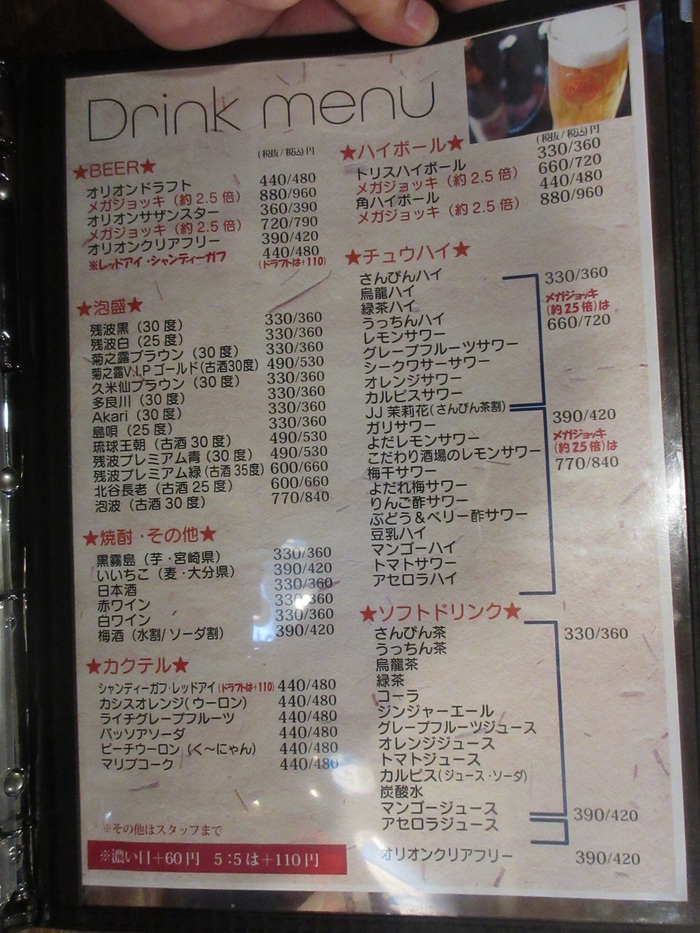 Drink menu
(税抜/税込)円
★BEER★
オリオンドラフト 440/480
メガジョッキ（約2.5倍） 880/960
オリオンサザンスター 360/390
メガジョッキ（約2.5倍） 720/790
オリオンクリアフリー 390/420
※レッドアイ・シャンディーガフ 440/480
(ドラフトは+110)
★泡盛★
残波黒（30度） 330/360
残波白（25度） 330/360
菊之露ブラウン（30度） 330/360
菊之露V.I.Pゴールド(古酒30度) 490/530
久米仙ブラウン（30度） 330/360
多良川（30度） 330/360
Akari（30度） 330/360
島唄（25度） 330/360
琉球王朝（古酒30度） 490/530
残波プレミアム青（30度） 490/530
残波プレミアム緑(古酒35度) 600/660
北谷長老（古酒25度） 600/660
泡波（古酒30度） 770/840
★焼酎・その他★
黒霧島（芋・宮崎県） 330/360
いいちこ（麦・大分県） 390/420
日本酒 330/360
赤ワイン 330/360
白ワイン 330/360
梅酒（水割/ソーダ割） 390/420
★カクテル★
シャンディーガフ・レッドアイ(ドラフトは+110) 440/480
カシスオレンジ(ウーロン) 440/480
ライチグレープフルーツ 440/480
パッソアソーダ 440/480
ピーチウーロン（く〜にゃん） 440/480
マリブコーク 440/480
※その他はスタッフまで
※濃い目＋60円　5：5は＋110円
(税抜/税込)円
★ハイボール★
トリスハイボール 330/360
メガジョッキ（約2.5倍） 660/720
角ハイボール 440/480
メガジョッキ（約2.5倍） 880/960
★チュウハイ★
さんぴんハイ 330/360
烏龍ハイ
緑茶ハイ
うっちんハイ
レモンサワー
グレープフルーツサワー
シークワサーサワー
オレンジサワー
カルピスサワー
メガジョッキ
(約2.5倍)は
660/720
JJ茉莉花(さんぴん茶割)
ガリサワー
よだレモンサワー
こだわり酒場のレモンサワー
梅干サワー
よだれ梅サワー
りんご酢サワー
ぶどう＆ベリー酢サワー
豆乳ハイ
マンゴーハイ
トマトサワー
アセロラハイ
390/420
メガジョッキ
(約2.5倍)は
770/840
★ソフトドリンク★
さんぴん茶 330/360
うっちん茶
烏龍茶
緑茶
コーラ
ジンジャーエール
グレープフルーツジュース
オレンジジュース
トマトジュース
カルピス(ジュース・ソーダ)
炭酸水
マンゴージュース 390/420
アセロラジュース
オリオンクリアフリー 390/420